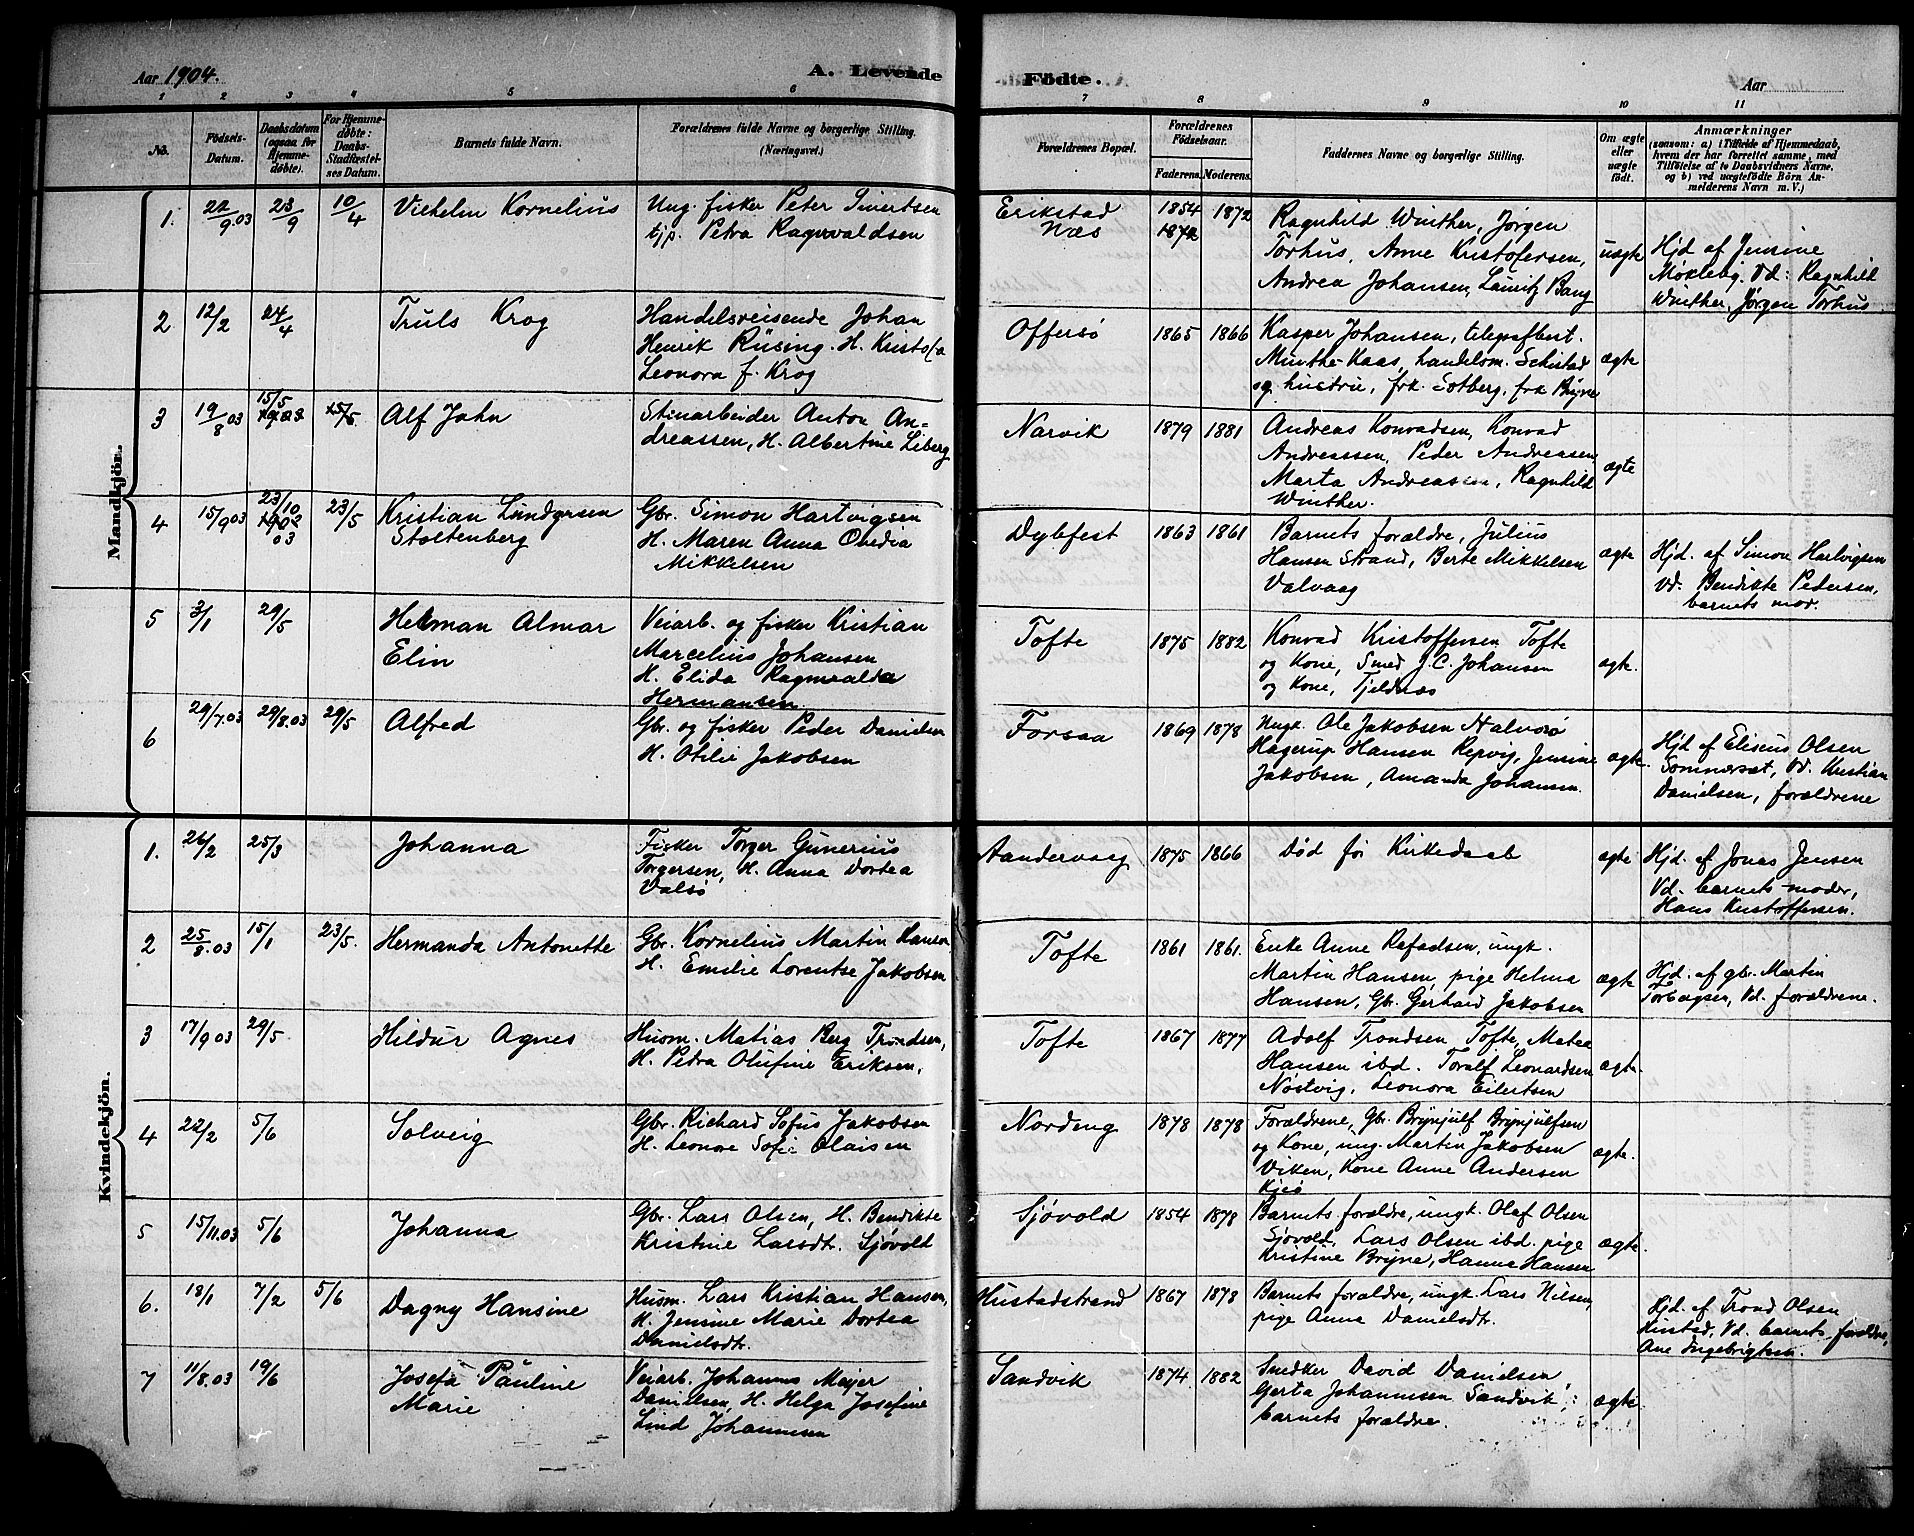 Aar 1904.
A. Levende Födte.
Aar
1 2 3 4 5 6 7 8 9 10 11
No.
Födsels-
Datum.
Daabsdatum
(ogsaa for
Hjemme-
døbte).
For Hjemme-
døbte:
Daabs-
Stadfæstel-
ses Datum.
Barnets fulde Navn.
Forældrenes fulde Navne og borgerlige Stilling.
(Næringsvei.)
Forældrenes Bopæl.
Forældrenes
Födselsaar.
Faderens. Moderens.
Faddernes Navne og borgerlige Stilling.
Om ægte
eller
uægte
født.
Anmærkninger
(saasom: a) i Tilfælde af Hjemmedaab,
hvem der har forrettet samme, med
Tilföielse af to Daabsvidners Navne,
og b) ved uægtefödte Börn An-
melderens Navn m. V.)
Mandkjön.
1. 22/9.03 23/9 10/4 Vilhelm Kornelius
Ung. fisker Peter Sivertsen
tjp. Petra Ragnvaldsen
Erikstad
Næs
1854 1872
1872
Ragnhild Winther, Jørgen
Torhus, Anne Kristofersen,
Andrea Johansen, Lauritz Bang
uægte
Hjd af Jensine
Møklebj. Vd: Ragnhild
Winther, Jørgen Torhus
2 12/2 24/4 Truls Krog
Handelsreisende Johan
Henrik Rüsing. H.
Leonora f. Krog
Offersø
1865 1866
Kasper Johansen, telegrafbest.
Minthe-Kaas, handelsm. Schistad
og hustru, frk. Sotberg, frk Bryne
ægte
3 19/8 03 15/5 15/5 Alf Jahn
Stenarbeider Anton An-
dreassen, H. Albertine Liberg
Narvik
1879 1881
Andreas Konradsen, Konrad
Andreassen, Peder Andreasen
Marta Andreassen, Ragnhild
Winther.
ægte
4 15/9 03 23/10 03 23/5 Kristian Lundgrsen
Stoltenberg
Gbr. Simon Hartvigsen
H. Maren Anna Ovedia
Mikkelsen
Dybfest
1863 1861
Barnets forældre, Julius
Hansen Strand, Berte Mikkelsen
Valvaag
ægte
Hjd. af Simon Hartvigsen
Vd. Bendikte Pedersen,
barnets mor.
5 3/1 29/5 Herman Almar
Elin
Veiarb. og fisker Kristian
Marcelius Johansen
H. Elida Ragnvalda
Hermansen
Tofte
1875 1882
Konrad Kristoffersen Tofte
og Kone, Smed J.C. Johansen
og Kone, Tjeldnæs
ægte.
6 29/7.03 29/8.03 29/5 Alfred
Gbr. og fisker Peder Danielsen
H. Otilie Jakobsen
Forsaa
1869 1878
Ungk. Ole Jakobsen Halvarø
Hagerup Hansen Repvig, Jensine
Jakobsen, Amanda Johansen.
ægte.
Hjd af Eliseus Olsen
Sommerset, Vd. Kristian
Danielsen, forældrene
Kvindekjön.
1. 26/2 25/3 Johanna
Fisker Torger Gunerius
Torgersen, H. Anna Dortea
Valsø
Aandervaag
1875 1866
Død før Kirkedaab
ægte
Hjd. af Jonas Jensen
Vd. barnets moder,
Hans Kristoffersen.
2 25/8.03 15/1 23/5. Hermanda Antonette
Gbr. Kornelius Martin Hansen
H. Emilie Lorentse Jakobsen
Tofte
1861 1861.
Enke Anne Rafadsen, ungk.
Martin Hansen, pige Helma
Hansen, Gbr. Gerhard Jakobsen
ægte
Hjd. af gbr. Martin
Torbergsen, Vd. forældrene.
3 17/9 03 29/5 Hildur Agnes
Husm. Matias Berg Trondsen,
H. Petra Olufine Eriksen.
Tofte
1867 1877
Adolf Trondsen Tofte, Matea
Hansen ibd. Toralf Leonardsen
Nøstvig, Leonora Eilertsen
ægte.
4 22/2 5/6 Solveig
Gbr. Richard Sofus Jakobsen
H. Leonore Sofie Olaisen
Nording
1878 1878
Forældrene, Gbr. Brynjulf Brynjulfsen
og Kone, ung. Martin Jakobsen
Viken, Kone Anne Andersen
Kjeø
ægte.
5 15/11.03 5/6 Johanna
Gbr. Lars Olsen, H. Bendikte
Kristine Larsdt. Sjøvold
Sjøvold
1854 1878
Barnets forældre, ungk. Olaf Olsen
Sjøvold, Lars Olsen ibd. pige
Kristine Bryne, Hanna Hansen
ægte.
6. 18/1 7/2 5/6 Dagny Hansine
Husm. Lars Kristian Hansen,
H. Jensine Marie Dortea
Danielsdt.
Hustadstrand
1867 1878
Barnets forældre, ungk. Lars Nilsen,
pige Anna Danielsdt.
Hjd. af Trond Olsen
Hustad, Vd. barnets forældre,
Ane Ingebrigtsen.
7 11/8.03 19/6 Josefa Pauline
Marie
Veiarb. Johannes Meijer
Danielsen, H. Helga Josefine
Lind Johannesen
Sandvik
1874 1882
Snedker David Danielsen
Gerta Johannesen Sandvik,
barnets forældre.
ægte.